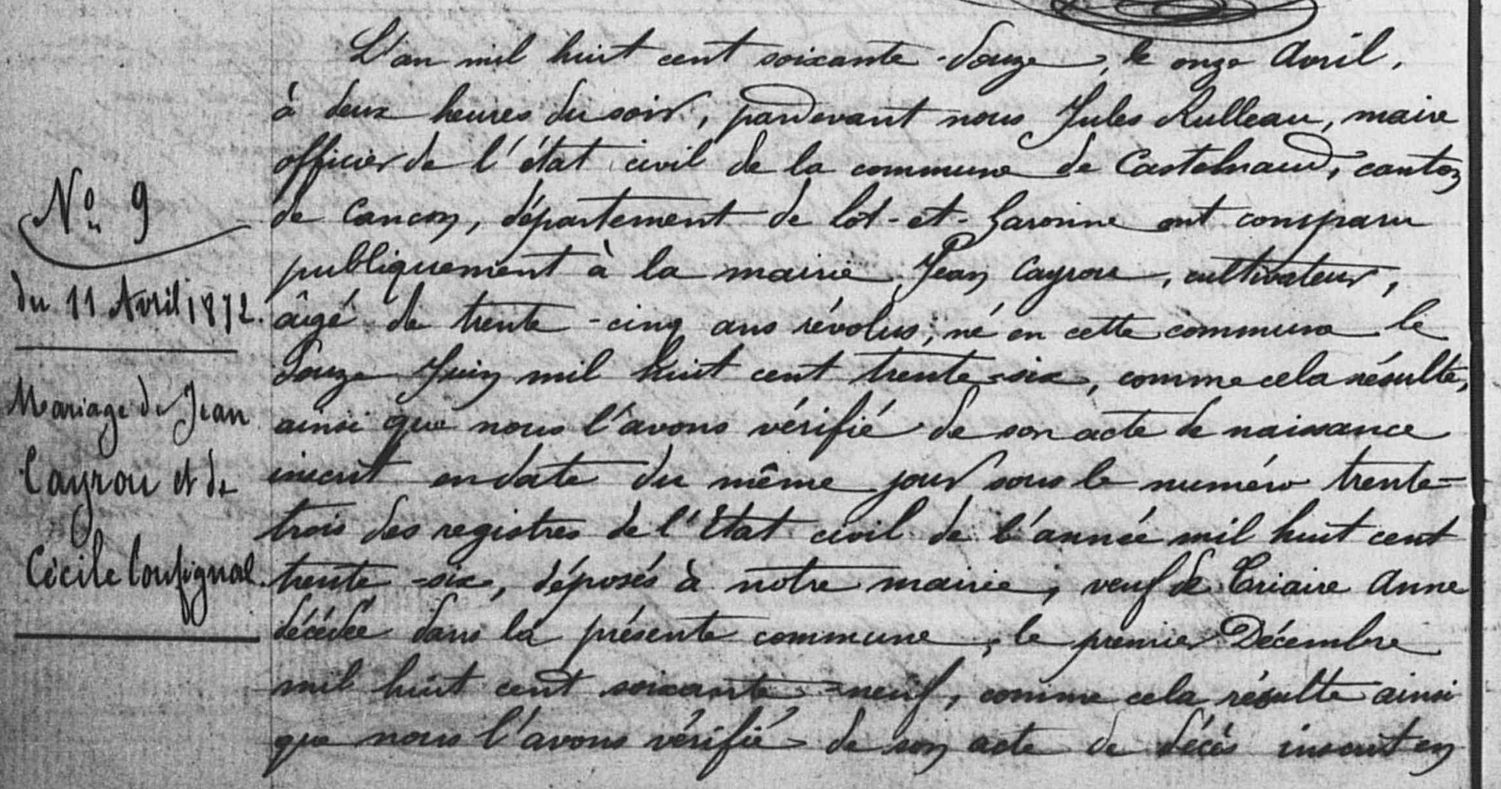 N° 9
du 11 Avril 1872.
Mariage de Jean
Cayrou et de
Cécile Confignal.
L'an mil huit cent soixante-douze, le onze Avril,
à deux heures du soir, pardevant nous Jules Rulleau, maire
officier de l'état civil de la commune de Castelnaud, canton
de Cancon, département de Lot-et-Garonne ont comparu
publiquement à la mairie Jean Cayrou, cultivateur,
âgé de trente-cinq ans révolus, né en cette commune le
douze Juin mil huit cent trente-six, comme cela résulte,
ainsi que nous l'avons vérifié de son acte de naissance
inscrit en date du même jour sous le numéro trente-
trois des registres de l'Etat civil de l'année mil huit cent
trente-six, déposés à notre mairie, veuf de Criaire Anne
décédée dans la présente commune, le premier Décembre
mil huit cent soixante-neuf, comme cela résulte ainsi
que nous l'avons vérifié de son acte de décès inscrit en